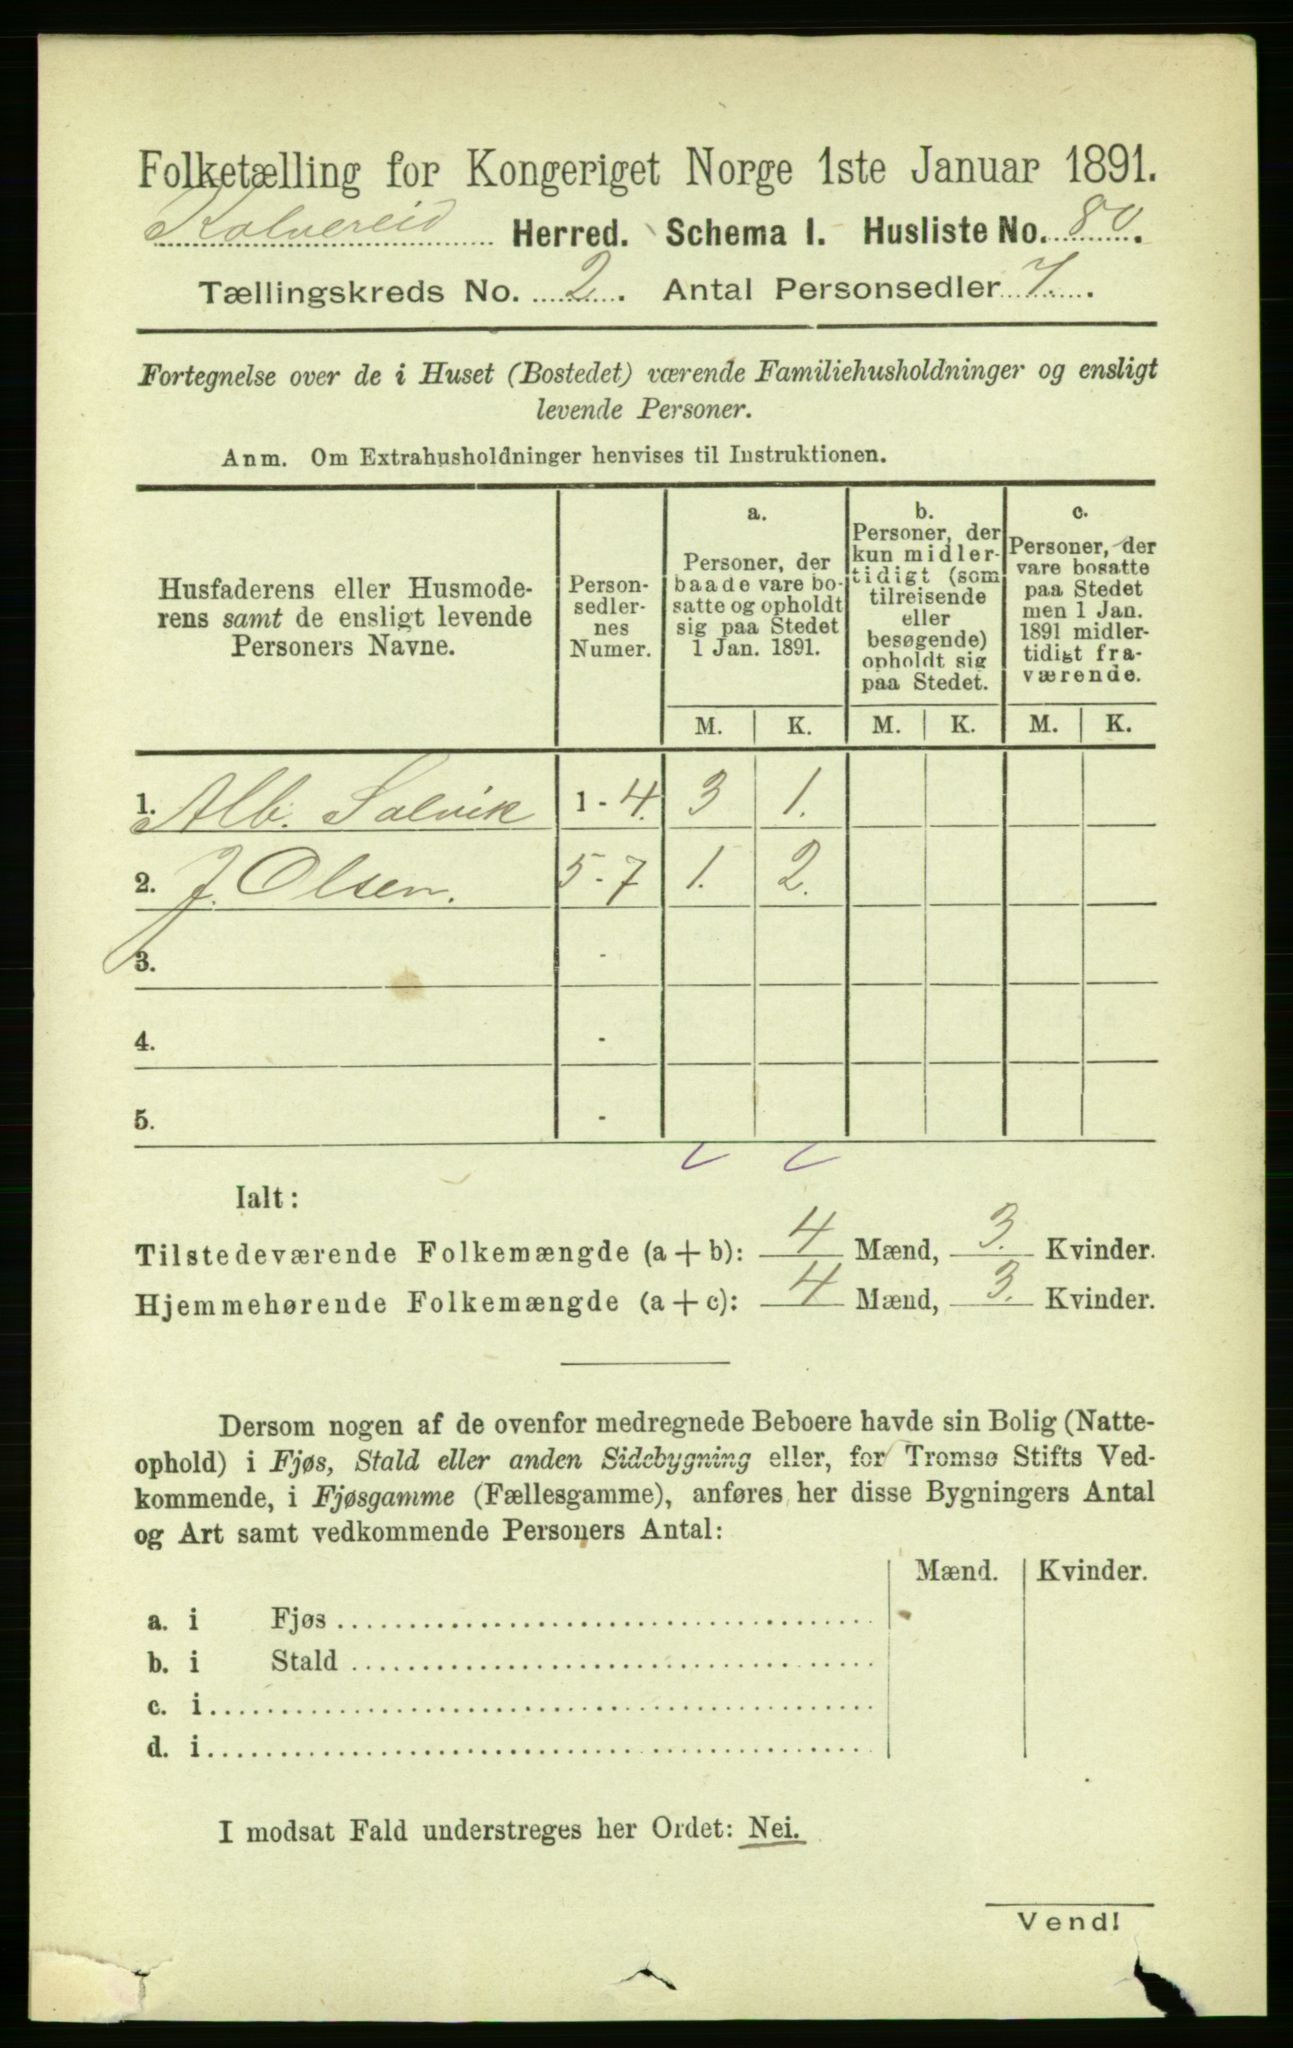 Folketælling for Kongeriget Norge 1ste Januar 1891.
Kolvereid Herred. Schema I. Husliste No. 80.
Tællingskreds No. 2. Antal Personsedler 7.
Fortegnelse over de i Huset (Bostedet) værende Familiehusholdninger og ensligt
levende Personer.
Anm. Om Extrahusholdninger henvises til Instruktionen.
Husfaderens eller Husmode-
rens samt de ensligt levende
Personers Navne.
Person-
sedler-
nes
Numer.
a.
Personer, der
baade vare bo-
satte og opholdt
sig paa Stedet
1 Jan. 1891.
b.
Personer, der
kun midler-
tidigt (som
tilreisende
eller
besøgende)
opholdt sig
paa Stedet.
c.
Personer, der
vare bosatte
paa Stedet
men 1 Jan.
1891 midler-
tidigt fra-
værende.
M. K. M. K. M. K.
1. Alb. Salvik 1 - 4. 3 1.
2. J. Olsen. 5 - 7 1. 2.
3. -
4. -
5. -
Ialt:
Tilstedeværende Folkemængde (a + b): 4 Mænd, 3. Kvinder.
Hjemmehørende Folkemængde (a + c): 4 Mænd, 3. Kvinder.
Dersom nogen af de ovenfor medregnede Beboere havde sin Bolig (Natte-
ophold) i Fjøs, Stald eller anden Sidebygning eller, for Tromsø Stifts Ved-
kommende, i Fjøsgamme (Fællesgamme), anføres her disse Bygningers Antal
og Art samt vedkommende Personers Antal:
Mænd. Kvinder.
a. i Fjøs
b. i Stald
c. i
d. i
I modsat Fald understreges her Ordet: Nei.
Vend!